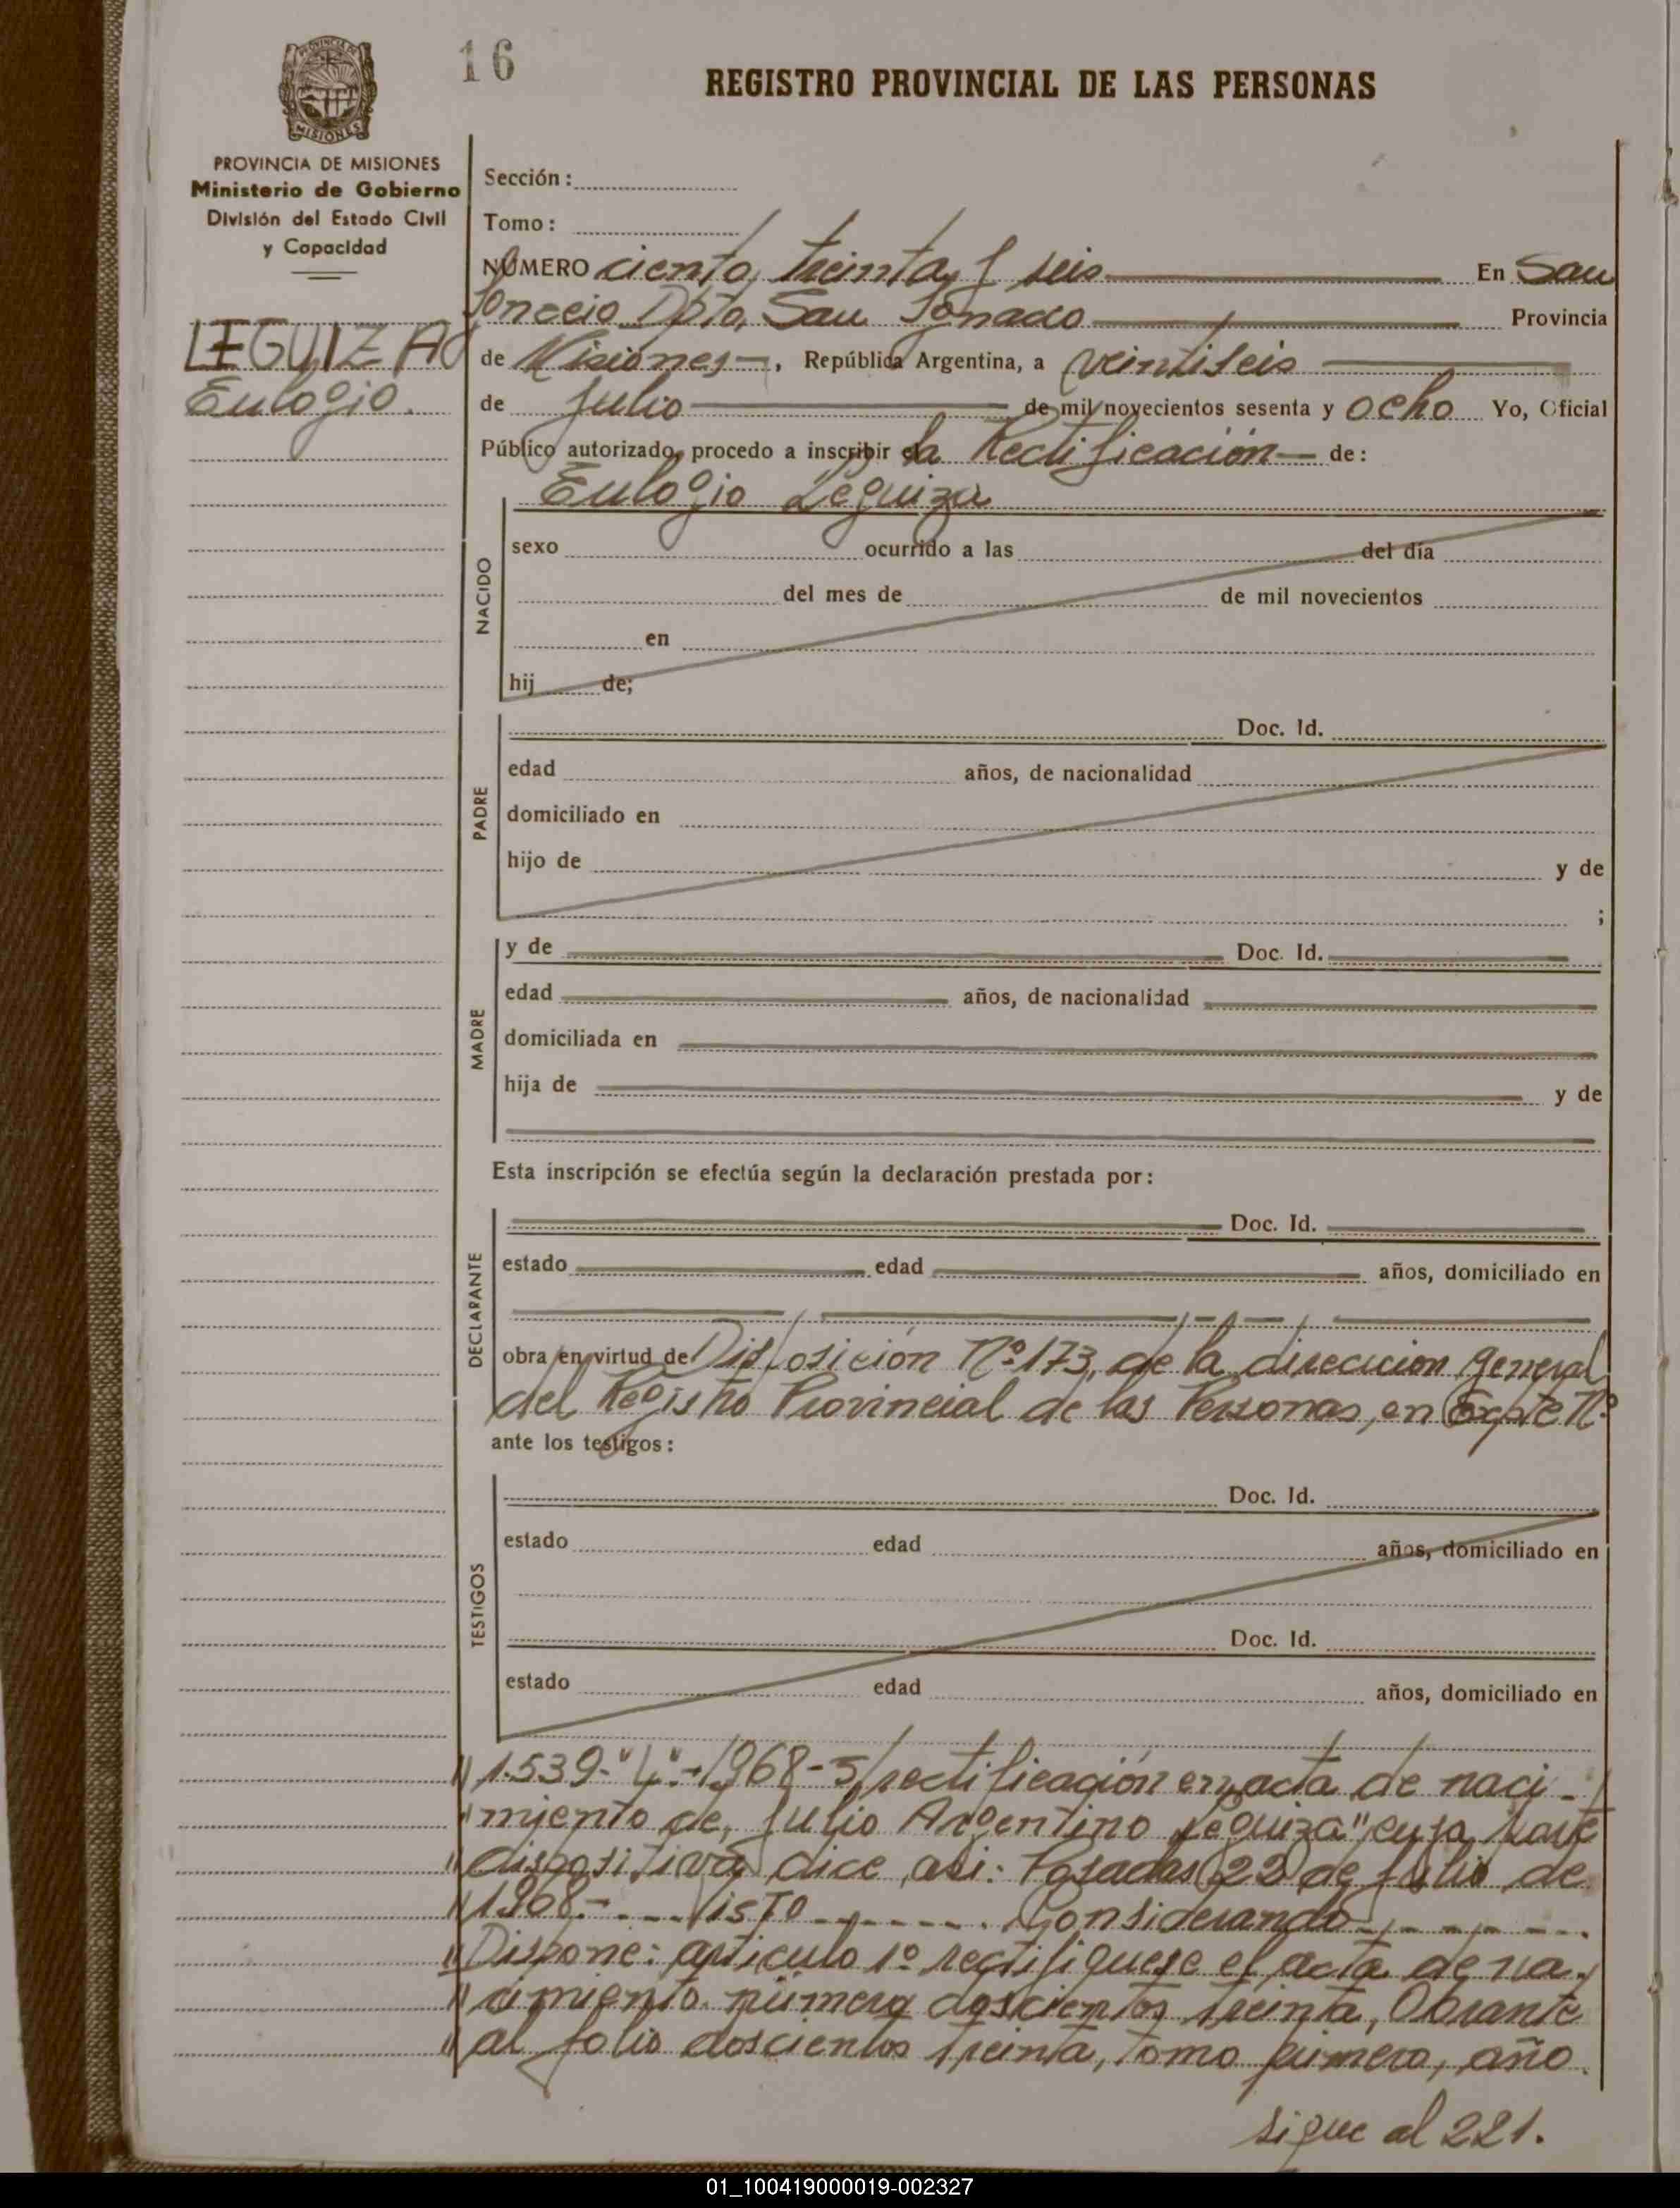 16
REGISTRO PROVINCIAL DE LAS PERSONAS
PROVINCIA DE MISIONES
MISIONES
PROVINCIA DE MISIONES
Ministerio de Gobierno
División del Estado Civil
y Capacidad
LEGUIZA
Eulogio.
Sección:
Tomo:
NÚMERO ciento treinta y seis En San
Ignacio Dpto, San Ignacio Provincia
de Misiones, República Argentina, a veintiseis
de julio de mil novecientos sesenta y ocho Yo, Oficial
Público autorizado, procedo a inscribir la Rectificación de:
Eulogio Leguiza
NACIDO
sexo ocurrido a las del día
del mes de de mil novecientos
en
hij de;
PADRE
Doc. Id.
edad años, de nacionalidad
domiciliado en
hijo de y de
;
MADRE
y de Doc. Id.
edad años, de nacionalidad
domiciliada en
hija de y de
Esta inscripción se efectúa según la declaración prestada por:
DECLARANTE
Doc. Id.
estado edad años, domiciliado en
obra en virtud de Disposición Nº 173, de la direccion general
del Registro Provincial de las Personas, en Expte Nº
ante los testigos:
TESTIGOS
Doc. Id.
estado edad años, domiciliado en
Doc. Id.
estado edad años, domiciliado en
"1.539-"L"-1968-S/rectificación en acta de naci-
"miento de, Julio Argentino Leguiza" cuya parte
"dispositiva dice asi: Posadas 22 de Julio de
"1968.- --- Visto ------. Considerando ------.
"Dispone: articulo 1º rectifiquese el acta de na-
"cimiento número doscientos treinta, Obrante
"al folio doscientos treinta, tomo primero, año
sigue al 221.
01_100419000019-002327